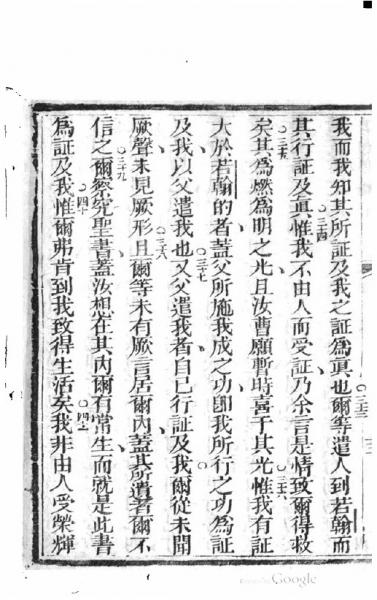 我而我知其所証及我之証為眞也○三十三爾等遣人到若翰而
其行証及眞○三十四惟我不由人而受証乃余言是情致爾得救
○三十五矣其為燃為明之光且汝曹願暫時喜于其光○三十六惟我有証
大於若翰的者蓋父所施我成之功即我所行之功為証
及我以父遣我也○三十七又父遣我者自己行証及我爾從未聞
厥聲未見厥形○三十八且爾等未有厥言居爾內蓋其所遣者爾不
信之○三十九爾察究聖書蓋汝想在其內爾有常生而就是此書
為証及我○四十惟爾弗肯到我致得生活矣○四十一我非由人受榮輝
Google